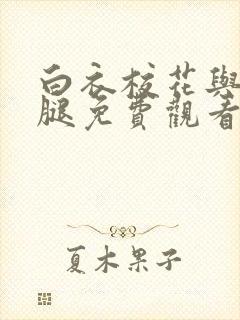 白衣校花與
腿免費觀看
夏木果子